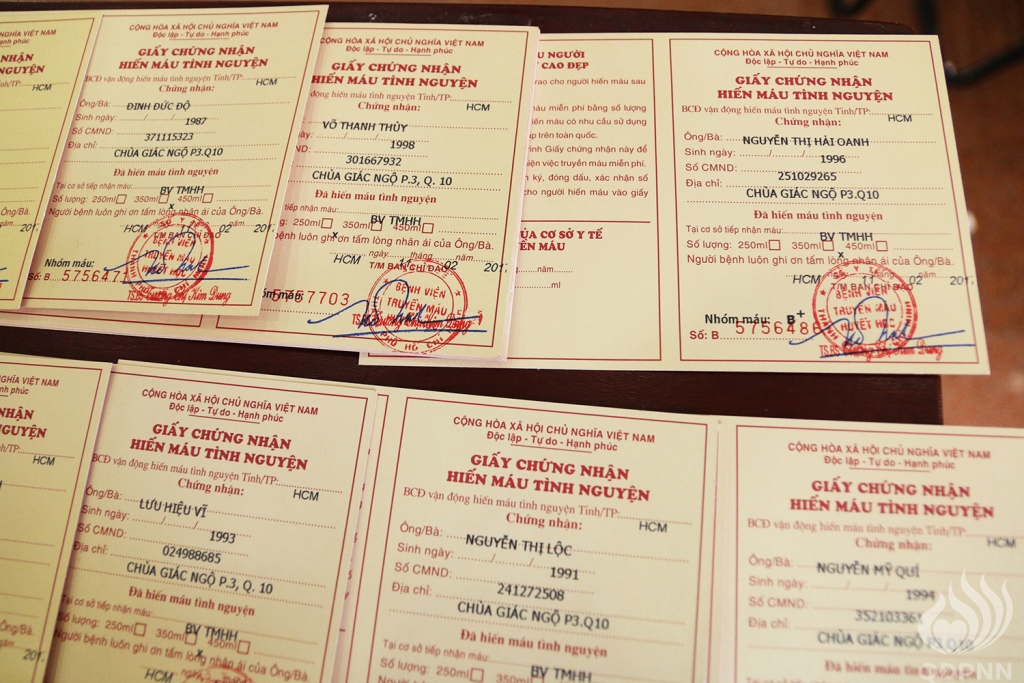 CỘNG HÒA XÃ HỘI CHỦ NGHĨA VIỆT NAM
Độc lập - Tự do - Hạnh phúc
GIẤY CHỨNG NHẬN
HIẾN MÁU TÌNH NGUYỆN
BCĐ vận động hiến máu tình nguyện Tỉnh/TP: HCM
Chứng nhận:
Ông/Bà: ĐINH ĐỨC ĐỘ
Sinh ngày: / / 1987
Số CMND: 371115323
Địa chỉ: CHÙA GIÁC NGỘ P3.Q10
Đã hiến máu tình nguyện
Tại cơ sở tiếp nhận máu: BV TMHH
Số lượng: 250ml 350ml 450ml
x
Người bệnh luôn ghi ơn tấm lòng nhân ái của Ông/Bà.
HCM 11 02 năm 201
T/M BAN CHỈ ĐẠO
BỆNH VIỆN
TRUYỀN MÁU
HUYẾT HỌC
Nhóm máu:
Số: B 575647
CỘNG HÒA XÃ HỘI CHỦ NGHĨA VIỆT NAM
Độc lập - Tự do - Hạnh phúc
GIẤY CHỨNG NHẬN
HIẾN MÁU TÌNH NGUYỆN
động hiến máu tình nguyện Tỉnh/TP: HCM
Chứng nhận:
VÕ THANH THÙY
/ / 1998
ND: 301667932
CHÙA GIÁC NGỘ P.3, Q. 10
Đã hiến máu tình nguyện
tiếp nhận máu: BV TMHH
250ml 350ml 450ml
x
bệnh luôn ghi ơn tấm lòng nhân ái của Ông/Bà.
HCM ngày 11 tháng 02 năm 201
T/M BAN CHỈ ĐẠO
BỆNH VIỆN
TRUYỀN MÁU
HUYẾT HỌC
nhóm máu:
57703
U NGƯỜI
CAO ĐẸP
trao cho người hiến máu sau
máu miễn phí bằng số lượng
hiến máu có nhu cầu sử dụng
lập trên toàn quốc.
trình Giấy chứng nhận này để
hiện việc truyền máu miễn phí.
ký, đóng dấu, xác nhận số
cho người hiến máu vào giấy
ỦA CƠ SỞ Y TẾ
ỀN MÁU
năm
ml
CỘNG HÒA XÃ HỘI CHỦ NGHĨA VIỆT NAM
Độc lập - Tự do - Hạnh phúc
GIẤY CHỨNG NHẬN
HIẾN MÁU TÌNH NGUYỆN
BCĐ vận động hiến máu tình nguyện Tỉnh/TP: HCM
Chứng nhận:
Ông/Bà: NGUYỄN THỊ HẢI OANH
Sinh ngày: / / 1996
Số CMND: 251029265
Địa chỉ: CHÙA GIÁC NGỘ P3.Q10
Đã hiến máu tình nguyện
Tại cơ sở tiếp nhận máu: BV TMHH
Số lượng: 250ml 350ml 450ml
x
Người bệnh luôn ghi ơn tấm lòng nhân ái của Ông/Bà.
HCM 11 02 năm 201
T/M BAN CHỈ ĐẠO
BỆNH VIỆN
TRUYỀN MÁU
HUYẾT HỌC
Nhóm máu: B+
Số: B 575648
NAM
HCM
CỘNG HÒA XÃ HỘI CHỦ NGHĨA VIỆT NAM
Độc lập - Tự do - Hạnh phúc
GIẤY CHỨNG NHẬN
HIẾN MÁU TÌNH NGUYỆN
BCĐ vận động hiến máu tình nguyện Tỉnh/TP: HCM
Chứng nhận:
Ông/Bà: LƯU HIỆU VĨ
Sinh ngày: / / 1993
Số CMND: 024988685
Địa chỉ: CHÙA GIÁC NGỘ P.3, Q. 10
Đã hiến máu tình nguyện
Tại cơ sở tiếp nhận máu: BV TMHH
Số lượng: 250ml 350ml 450ml
x
Người bệnh luôn ghi ơn tấm lòng nhân ái của Ông/Bà.
HCM ngày
CỘNG HÒA XÃ HỘI CHỦ NGHĨA VIỆT NAM
Độc lập - Tự do - Hạnh phúc
GIẤY CHỨNG NHẬN
HIẾN MÁU TÌNH NGUYỆN
BCĐ vận động hiến máu tình nguyện Tỉnh/TP: HCM
Chứng nhận:
Ông/Bà: NGUYỄN THỊ LỘC
Sinh ngày: / / 1991
Số CMND: 241272508
Địa chỉ: CHÙA GIÁC NGỘ P3.Q10
Đã hiến máu tình nguyện
Tại cơ sở tiếp nhận máu: BV TMHH
Số lượng: 250ml 350ml 450ml
CỘNG HÒA XÃ HỘI CHỦ NGHĨA VIỆT NAM
Độc lập - Tự do - Hạnh phúc
GIẤY CHỨNG NHẬN
HIẾN MÁU TÌNH NGUYỆN
BCĐ vận động hiến máu tình nguyện Tỉnh/TP: HCM
Chứng nhận:
Ông/Bà: NGUYỄN MỸ QUÍ
Sinh ngày: / / 1994
Số CMND: 352103361
Địa chỉ: CHÙA GIÁC NGỘ P3.Q10
Đã hiến máu tình nguyện
Tại cơ sở tiếp nhận máu: